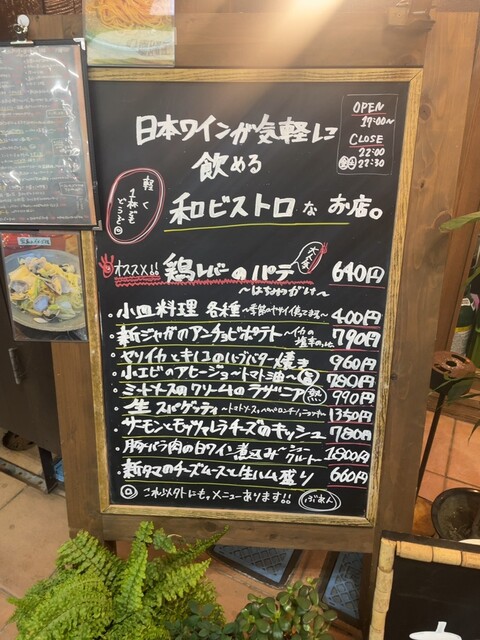 日本ワインが気軽に
飲める
和ビストロな お店。
OPEN
17:00〜
CLOSE
22:00
22:30
軽く
1杯でも
どうぞ
オススメ!!
鶏レバーのパテ
大人気
640円
〜はちみつがけ〜
・小皿料理 各種 〜季節のヤサイ使ってます〜 400円
・新ジャガのアンチョビポテト 〜イカの塩辛のっけ 790円
・ヤリイカとキノコのハーブバター焼き 960円
・小エビのアヒージョ〜トマト油〜 780円
・ミートソースのクリームのラザニア 熱 990円
・生スパゲッティ 〜トマトソースor 1350円
・サーモンとモッツァレラチーズのキッシュ 780円
・豚バラ肉の白ワイン煮込み シュークルート 1800円
・新タマのチーズムースと生ハム盛り 660円
◎ これ以外にも、メニューあります!! ぶあん